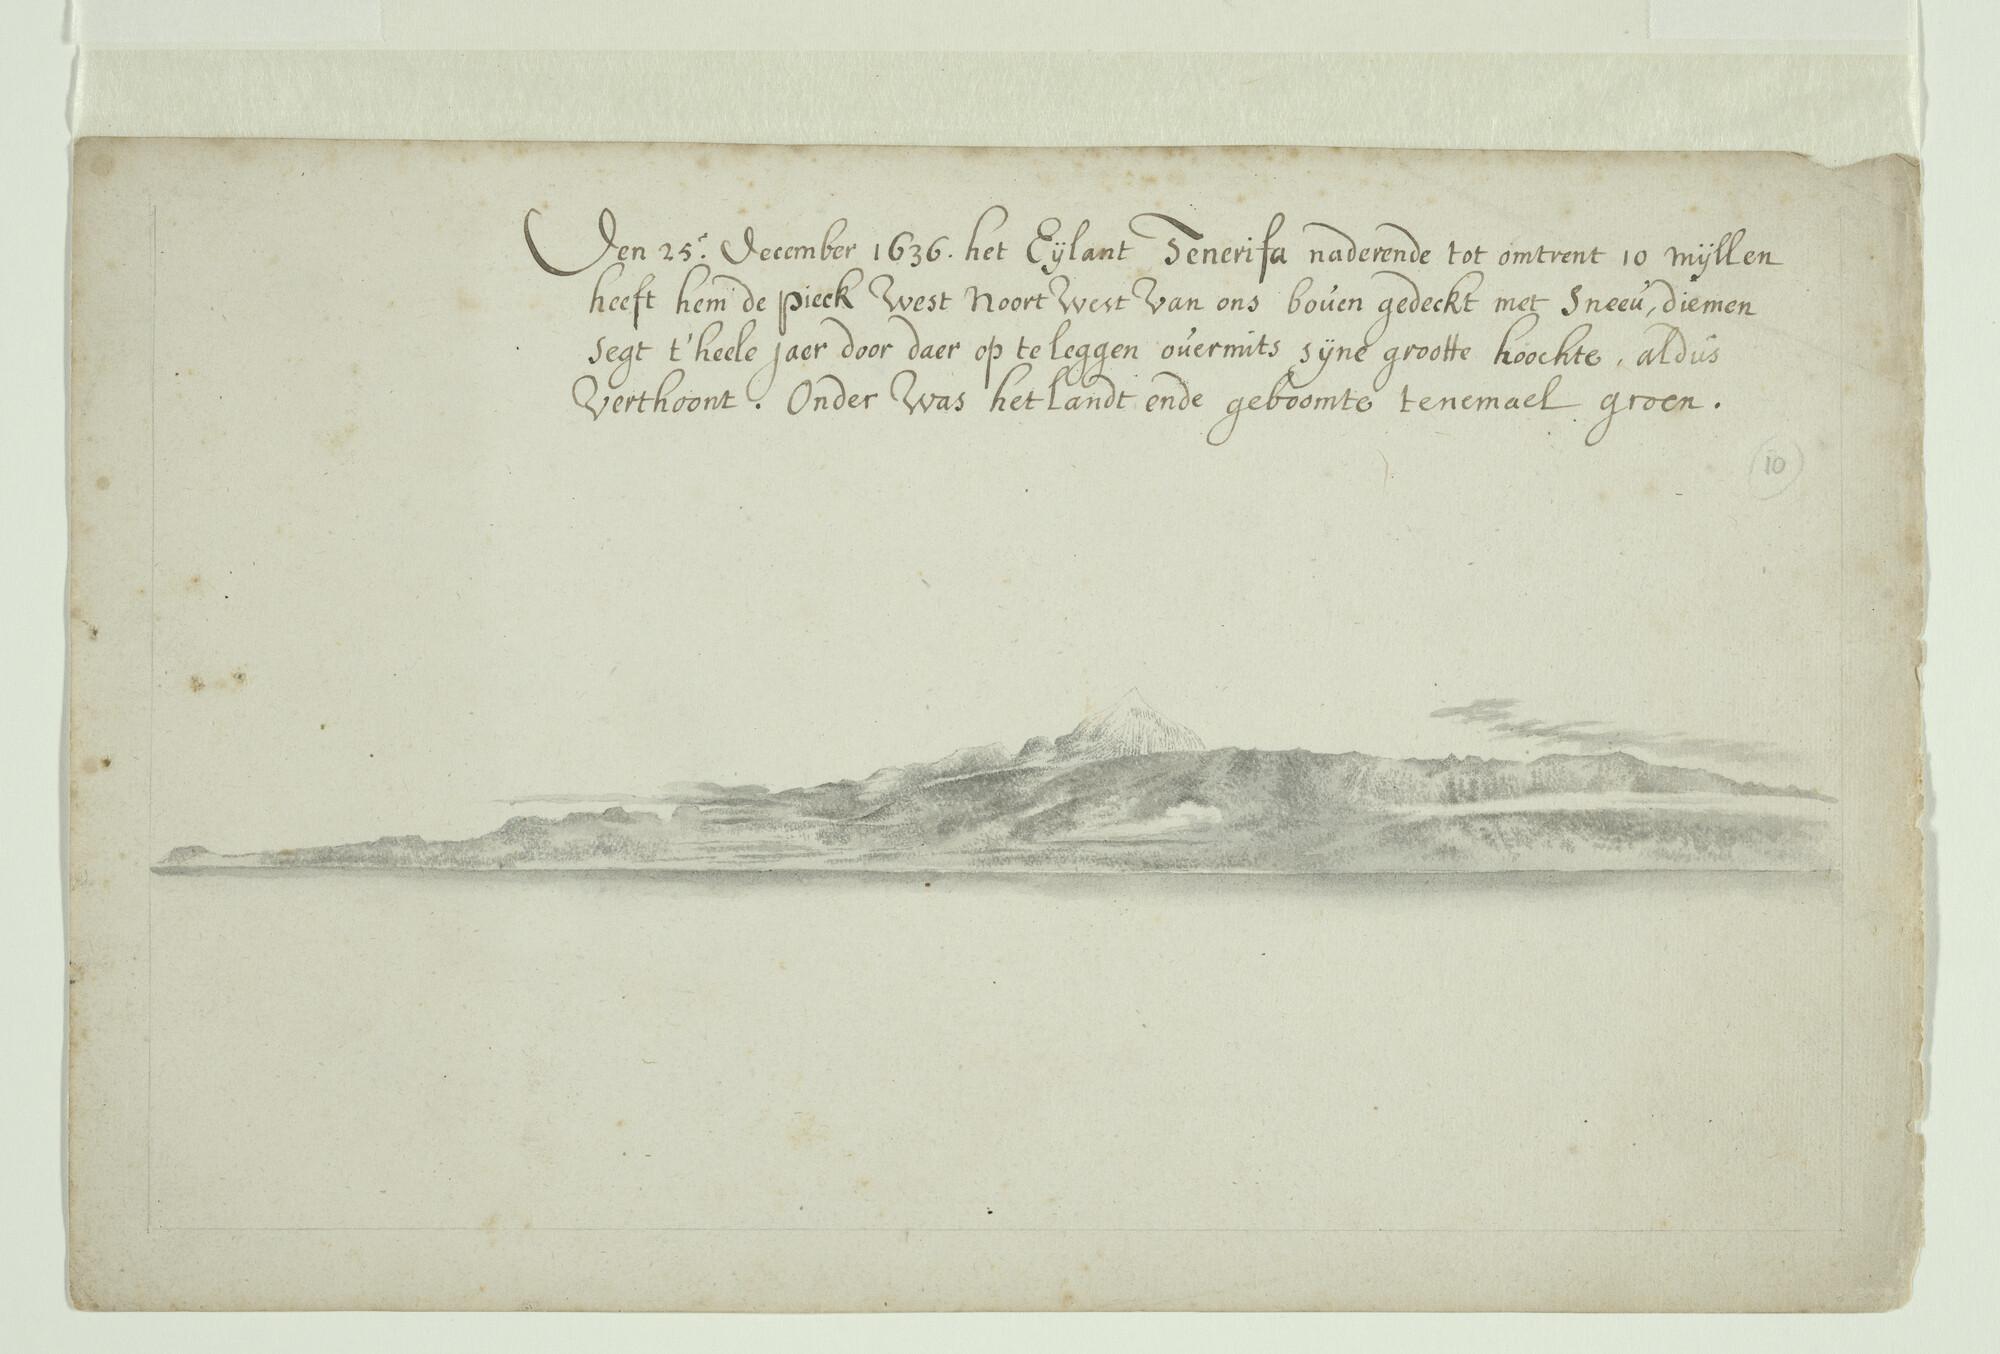 Den 25.e December 1636. het Eÿlant Tenerifa naderende tot omtrent 10 mÿllen
heeft hem de pieck West Noort West Van ons boven gedeckt met Sneeu, diemen
Segt t'heele jaer door daer op te leggen overmits sÿne grootte hoochte, aldus
Verthoont. Onder Was het landt ende geboomte tenemael groen.
10